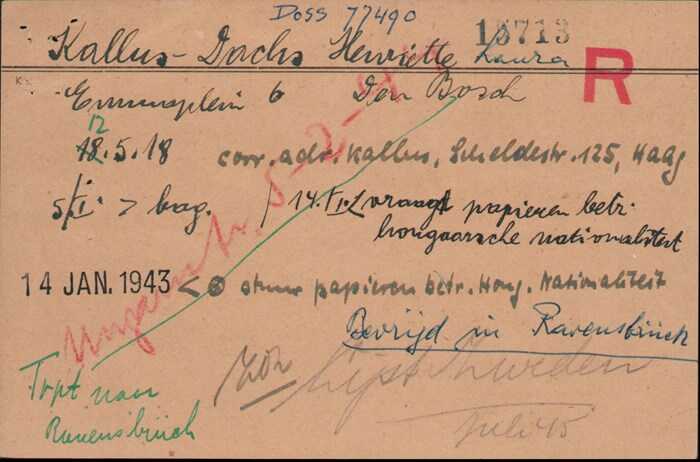 Doss 77490
15713
Kallus-Dachs Henriette Laura
R
Emmaplein 6 Den Bosch
12
18.5.18 corr. adr. Kallus, Scheldestr. 125, Haag
5/I. > bag. / 14.I. vraagt papieren betr.
hongaarsche nationaliteit
14 JAN. 1943 < stuur papieren betr. Hong. Nationaliteit
Bevrijd in Ravensbrück
Tspt naar
Ravensbrück
Lijst Zweden
Juli 45